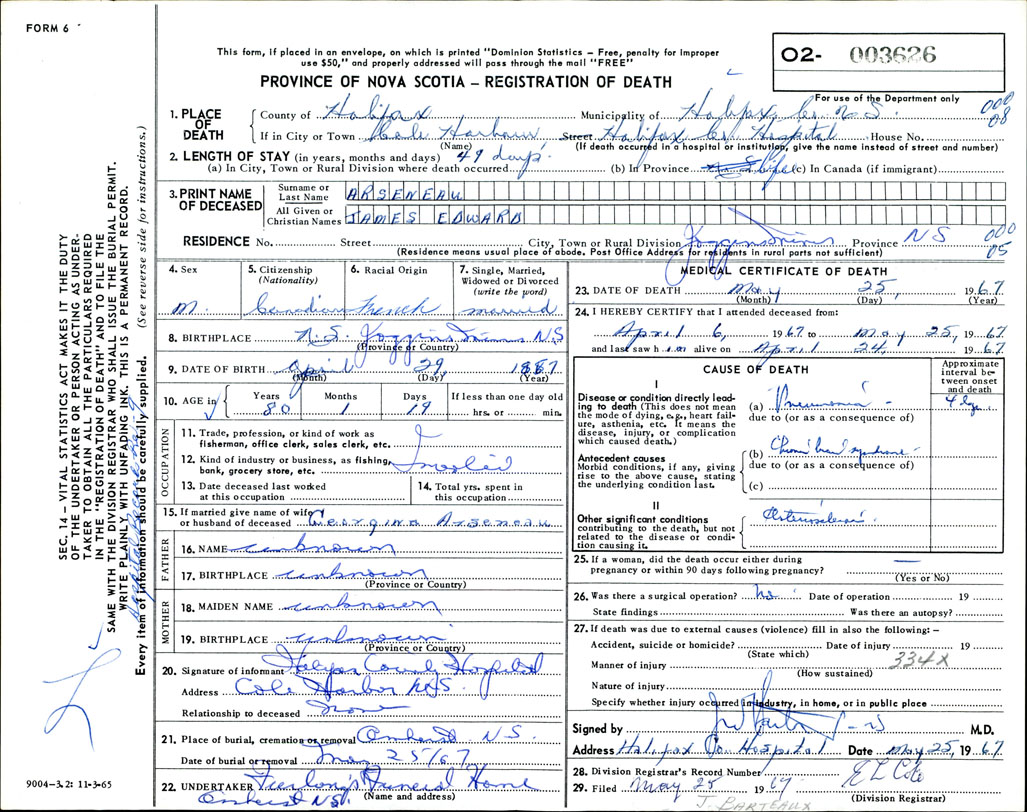 FORM 6
This form, if placed in an envelope, on which is printed "Dominion Statistics – Free, penalty for improper
use $50," and properly addressed will pass through the mail "FREE"
PROVINCE OF NOVA SCOTIA – REGISTRATION OF DEATH
O2- 003626
For use of the Department only
000
08
1. PLACE OF DEATH
County of Halifax Municipality of Halifax Co. N.S.
If in City or Town Cole Harbour, Street Halifax Co. Hospital House No.
(Name) (If death occurred in a hospital or institution, give the name instead of street and number)
2. LENGTH OF STAY (in years, months and days) 49 days.
(a) In City, Town or Rural Division where death occurred (b) In Province life (c) In Canada (if immigrant)
3. PRINT NAME OF DECEASED
Surname or Last Name ARSENEAU
All Given or Christian Names JAMES EDWARD
RESIDENCE No. Street City, Town or Rural Division Joggins Mines Province NS
000
05
(Residence means usual place of abode. Post Office Address for residents in rural parts not sufficient)
4. Sex
M.
5. Citizenship
(Nationality)
Canadian
6. Racial Origin
French
7. Single, Married,
Widowed or Divorced
(write the word)
married
8. BIRTHPLACE N.S. Joggins Mines N.S
(Province or Country)
9. DATE OF BIRTH April 29, 1887
(Month) (Day) (Year)
10. AGE in
Years Months Days If less than one day old
80 1 19 hrs. or min.
OCCUPATION
11. Trade, profession, or kind of work as
fisherman, office clerk, sales clerk, etc.
12. Kind of industry or business, as fishing,
bank, grocery store, etc.
13. Date deceased last worked
at this occupation
14. Total yrs. spent in
this occupation
15. If married give name of wife
or husband of deceased Georgina Arseneau
FATHER
16. NAME unknown
17. BIRTHPLACE unknown
(Province or Country)
MOTHER
18. MAIDEN NAME unknown
19. BIRTHPLACE unknown
(Province or Country)
20. Signature of informant Halifax County Hospital
Address Cole Harbor N.S.
Relationship to deceased None
21. Place of burial, cremation or removal Amherst N.S.
Date of burial or removal May 25/67
22. UNDERTAKER Furlong's Funeral Home
Amherst NS. (Name and address)
MEDICAL CERTIFICATE OF DEATH
23. DATE OF DEATH May 25, 1967
(Month) (Day) (Year)
24. I HEREBY CERTIFY that I attended deceased from:
April 6, 1967 to May 25, 1967
and last saw h im alive on April 24, 1967.
CAUSE OF DEATH
Approximate
interval be-
tween onset
and death
I
Disease or condition directly lead-
ing to death (This does not mean
the mode of dying, e.g., heart fail-
ure, asthenia, etc. It means the
disease, injury, or complication
which caused death.)
(a) Pneumonia
due to (or as a consequence of)
Antecedent causes
Morbid conditions, if any, giving
rise to the above cause, stating
the underlying condition last.
(b) syndrome
due to (or as a consequence of)
(c)
II
Other significant conditions
contributing to the death, but not
related to the disease or condi-
tion causing it.
25. If a woman, did the death occur either during
pregnancy or within 90 days following pregnancy? —
(Yes or No)
26. Was there a surgical operation? No Date of operation 19
State findings Was there an autopsy?
27. If death was due to external causes (violence) fill in also the following: –
Accident, suicide or homicide? Date of injury 19
(State which) 334X
Manner of injury
(How sustained)
Nature of injury
Specify whether injury occurred in industry, in home, or in public place
Signed by M.D.
Address Halifax Co. Hospital Date May 25, 1967
28. Division Registrar's Record Number
29. Filed May 25 1967 E L Cole
(Division Registrar)
J. BARTEAUX
SEC. 14 – VITAL STATISTICS ACT MAKES IT THE DUTY
OF THE UNDERTAKER OR PERSON ACTING AS UNDER-
TAKER TO OBTAIN ALL THE PARTICULARS REQUIRED
IN THE "REGISTRATION OF DEATH" AND TO FILE THE
SAME WITH THE DIVISION REGISTRAR WHO SHALL ISSUE THE BURIAL PERMIT.
WRITE PLAINLY WITH UNFADING INK. THIS IS A PERMANENT RECORD.
Every item of information should be carefully supplied. (See reverse side for instructions.)
9004-3.2: 11-3-65